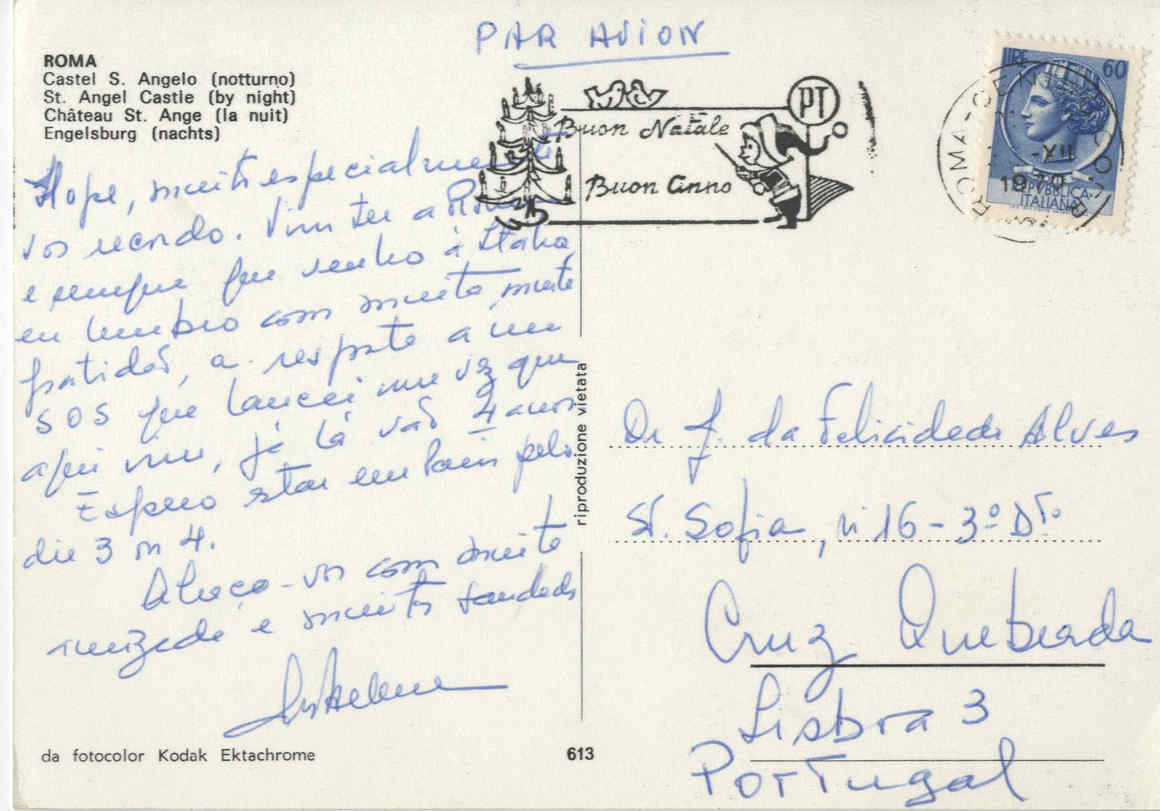 PAR AVION
ROMA
Castel S. Angelo (notturno)
St. Angel Castle (by night)
Château St. Ange (la nuit)
Engelsburg (nachts)
Buon Natale
Buon Anno
PT
LIRE 60
REPUBBLICA
ITALIANA
ROMA
XII
Hoje, muito especialmente
vos recordo. Vim ter a Roma
e sempre que venho à Itália
eu lembro com muita, muita
gratidão, a resposta a um
SOS que lancei uma vez que
aqui vim, já lá vão 4 anos
Espero estar em Paris pelo
dia 3 ou 4.
Abraço-vos com muita
amizade e muitas saudades
riproduzione vietata
Dr J. da Felicidade Alves
St. Sofia, nº 16 - 3º Dto.
Cruz Quebrada
Lisboa 3
Portugal
da fotocolor Kodak Ektachrome
613